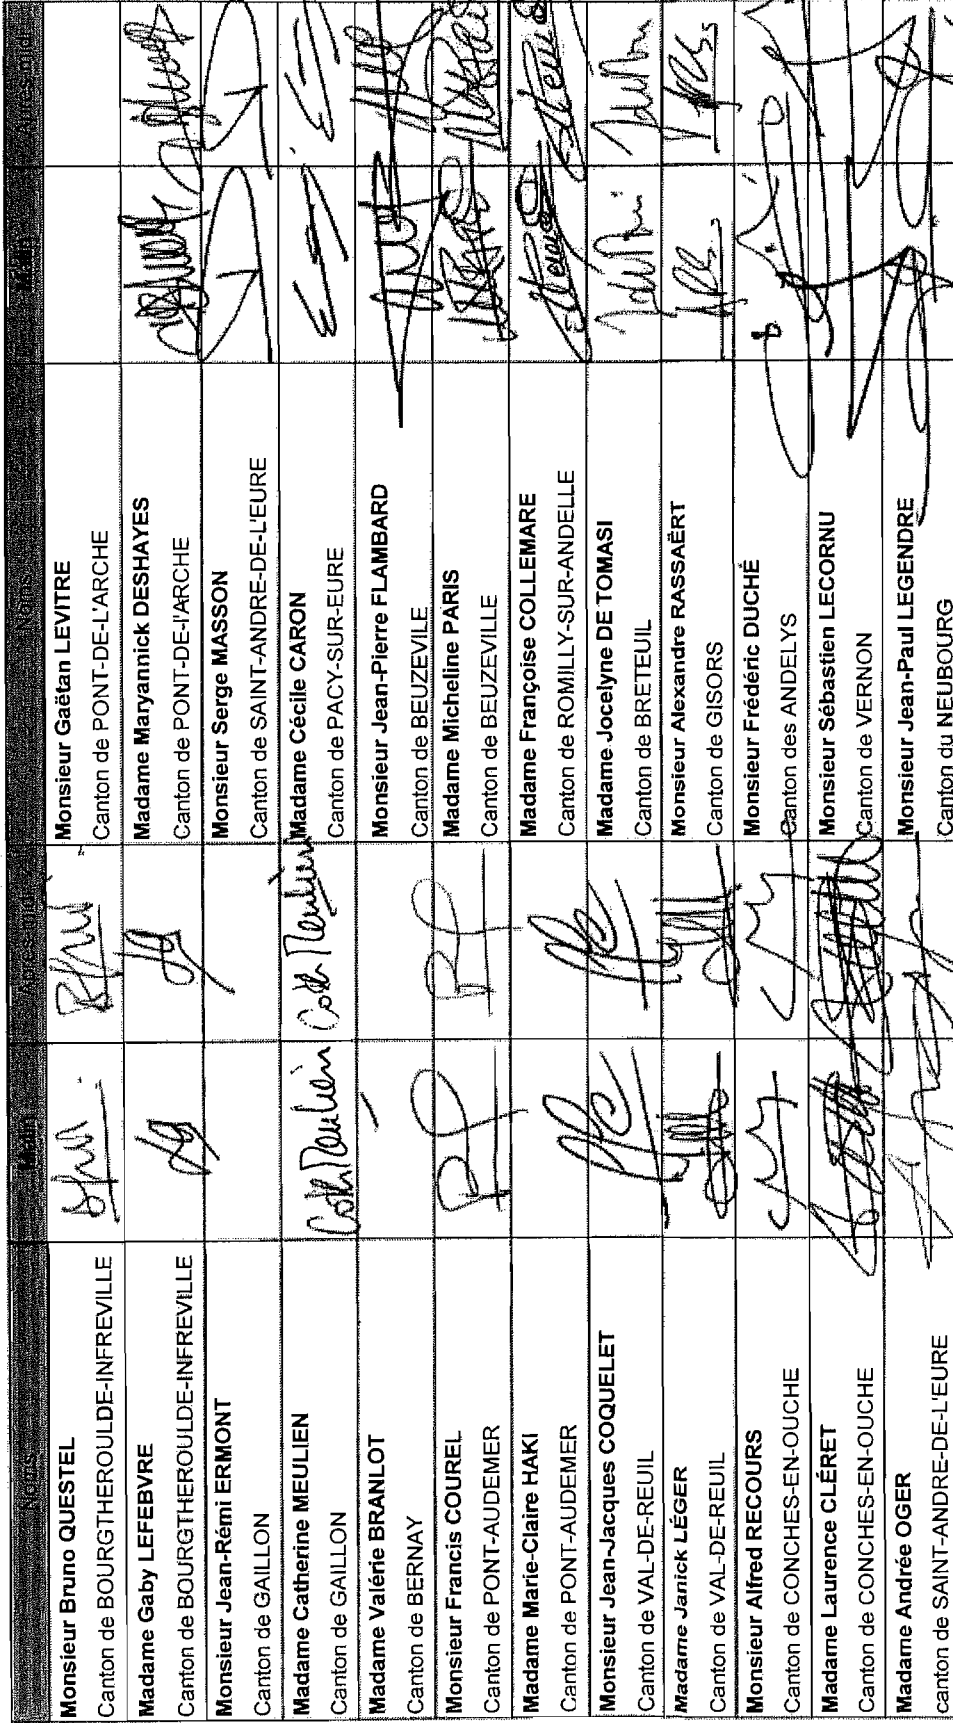 Noms Matin Après-midi Noms Matin Après-midi
Monsieur Bruno QUESTEL
Canton de BOURGTHEROULDE-INFREVILLE
Monsieur Gaëtan LEVITRE
Canton de PONT-DE-L'ARCHE
Madame Gaby LEFEBVRE
Canton de BOURGTHEROULDE-INFREVILLE
Madame Maryannick DESHAYES
Canton de PONT-DE-l'ARCHE
Monsieur Jean-Rémi ERMONT
Canton de GAILLON
Monsieur Serge MASSON
Canton de SAINT-ANDRE-DE-L'EURE
Madame Catherine MEULIEN
Canton de GAILLON
Cath Meulien Cath Meulien
Madame Cécile CARON
Canton de PACY-SUR-EURE
Madame Valérie BRANLOT
Canton de BERNAY
Monsieur Jean-Pierre FLAMBARD
Canton de BEUZEVILE
Monsieur Francis COUREL
Canton de PONT-AUDEMER
Madame Micheline PARIS
Canton de BEUZEVILLE
Madame Marie-Claire HAKI
Canton de PONT-AUDEMER
Madame Françoise COLLEMARE
Canton de ROMILLY-SUR-ANDELLE
Monsieur Jean-Jacques COQUELET
Canton de VAL-DE-REUIL
Madame Jocelyne DE TOMASI
Canton de BRETEUIL
Madame Janick LÉGER
Canton de VAL-DE-REUIL
Monsieur Alexandre RASSAËRT
Canton de GISORS
Monsieur Alfred RECOURS
Canton de CONCHES-EN-OUCHE
Monsieur Frédéric DUCHÉ
Canton des ANDELYS
Madame Laurence CLÉRET
Canton de CONCHES-EN-OUCHE
Monsieur Sébastien LECORNU
Canton de VERNON
Madame Andrée OGER
canton de SAINT-ANDRE-DE-L'EURE
Monsieur Jean-Paul LEGENDRE
Canton du NEUBOURG